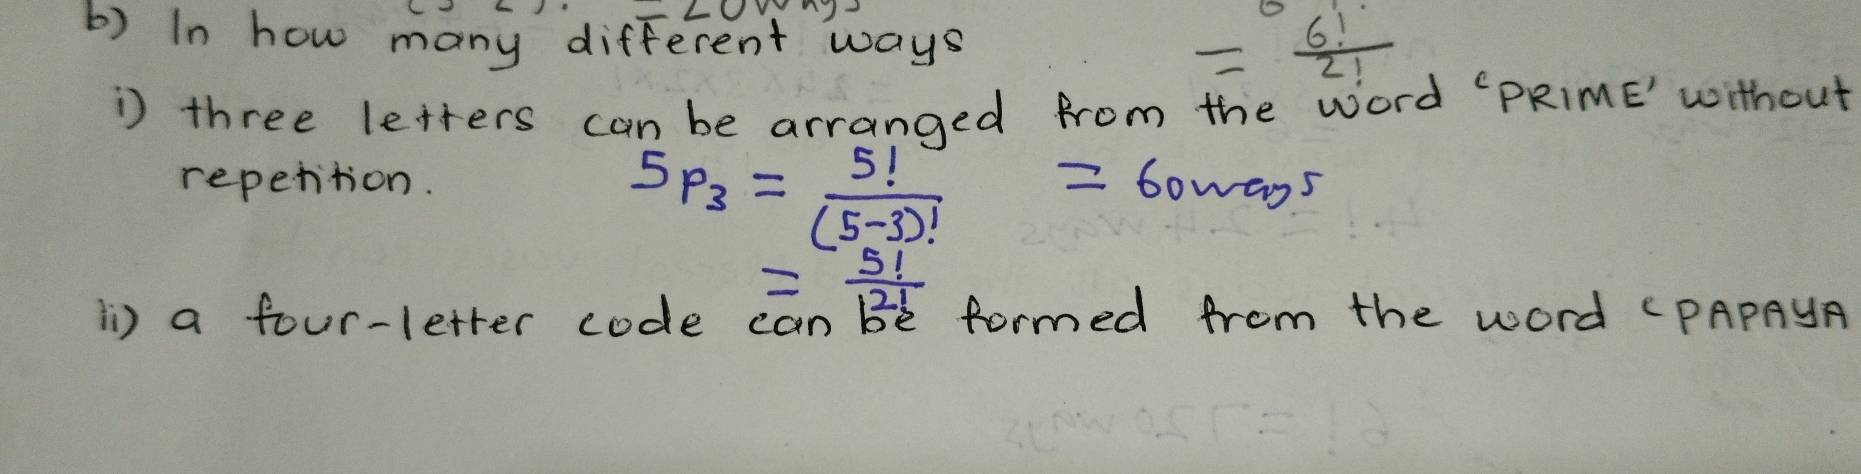 b) In how many different ways
= 6!/2!
i) three letters can be arranged from the word 'PRIME' without
repetition.
5P₃ = 5!/(5-3)! = 60ways
= 5!/2!
ii) a four-letter code can be formed from the word 'PAPAYA